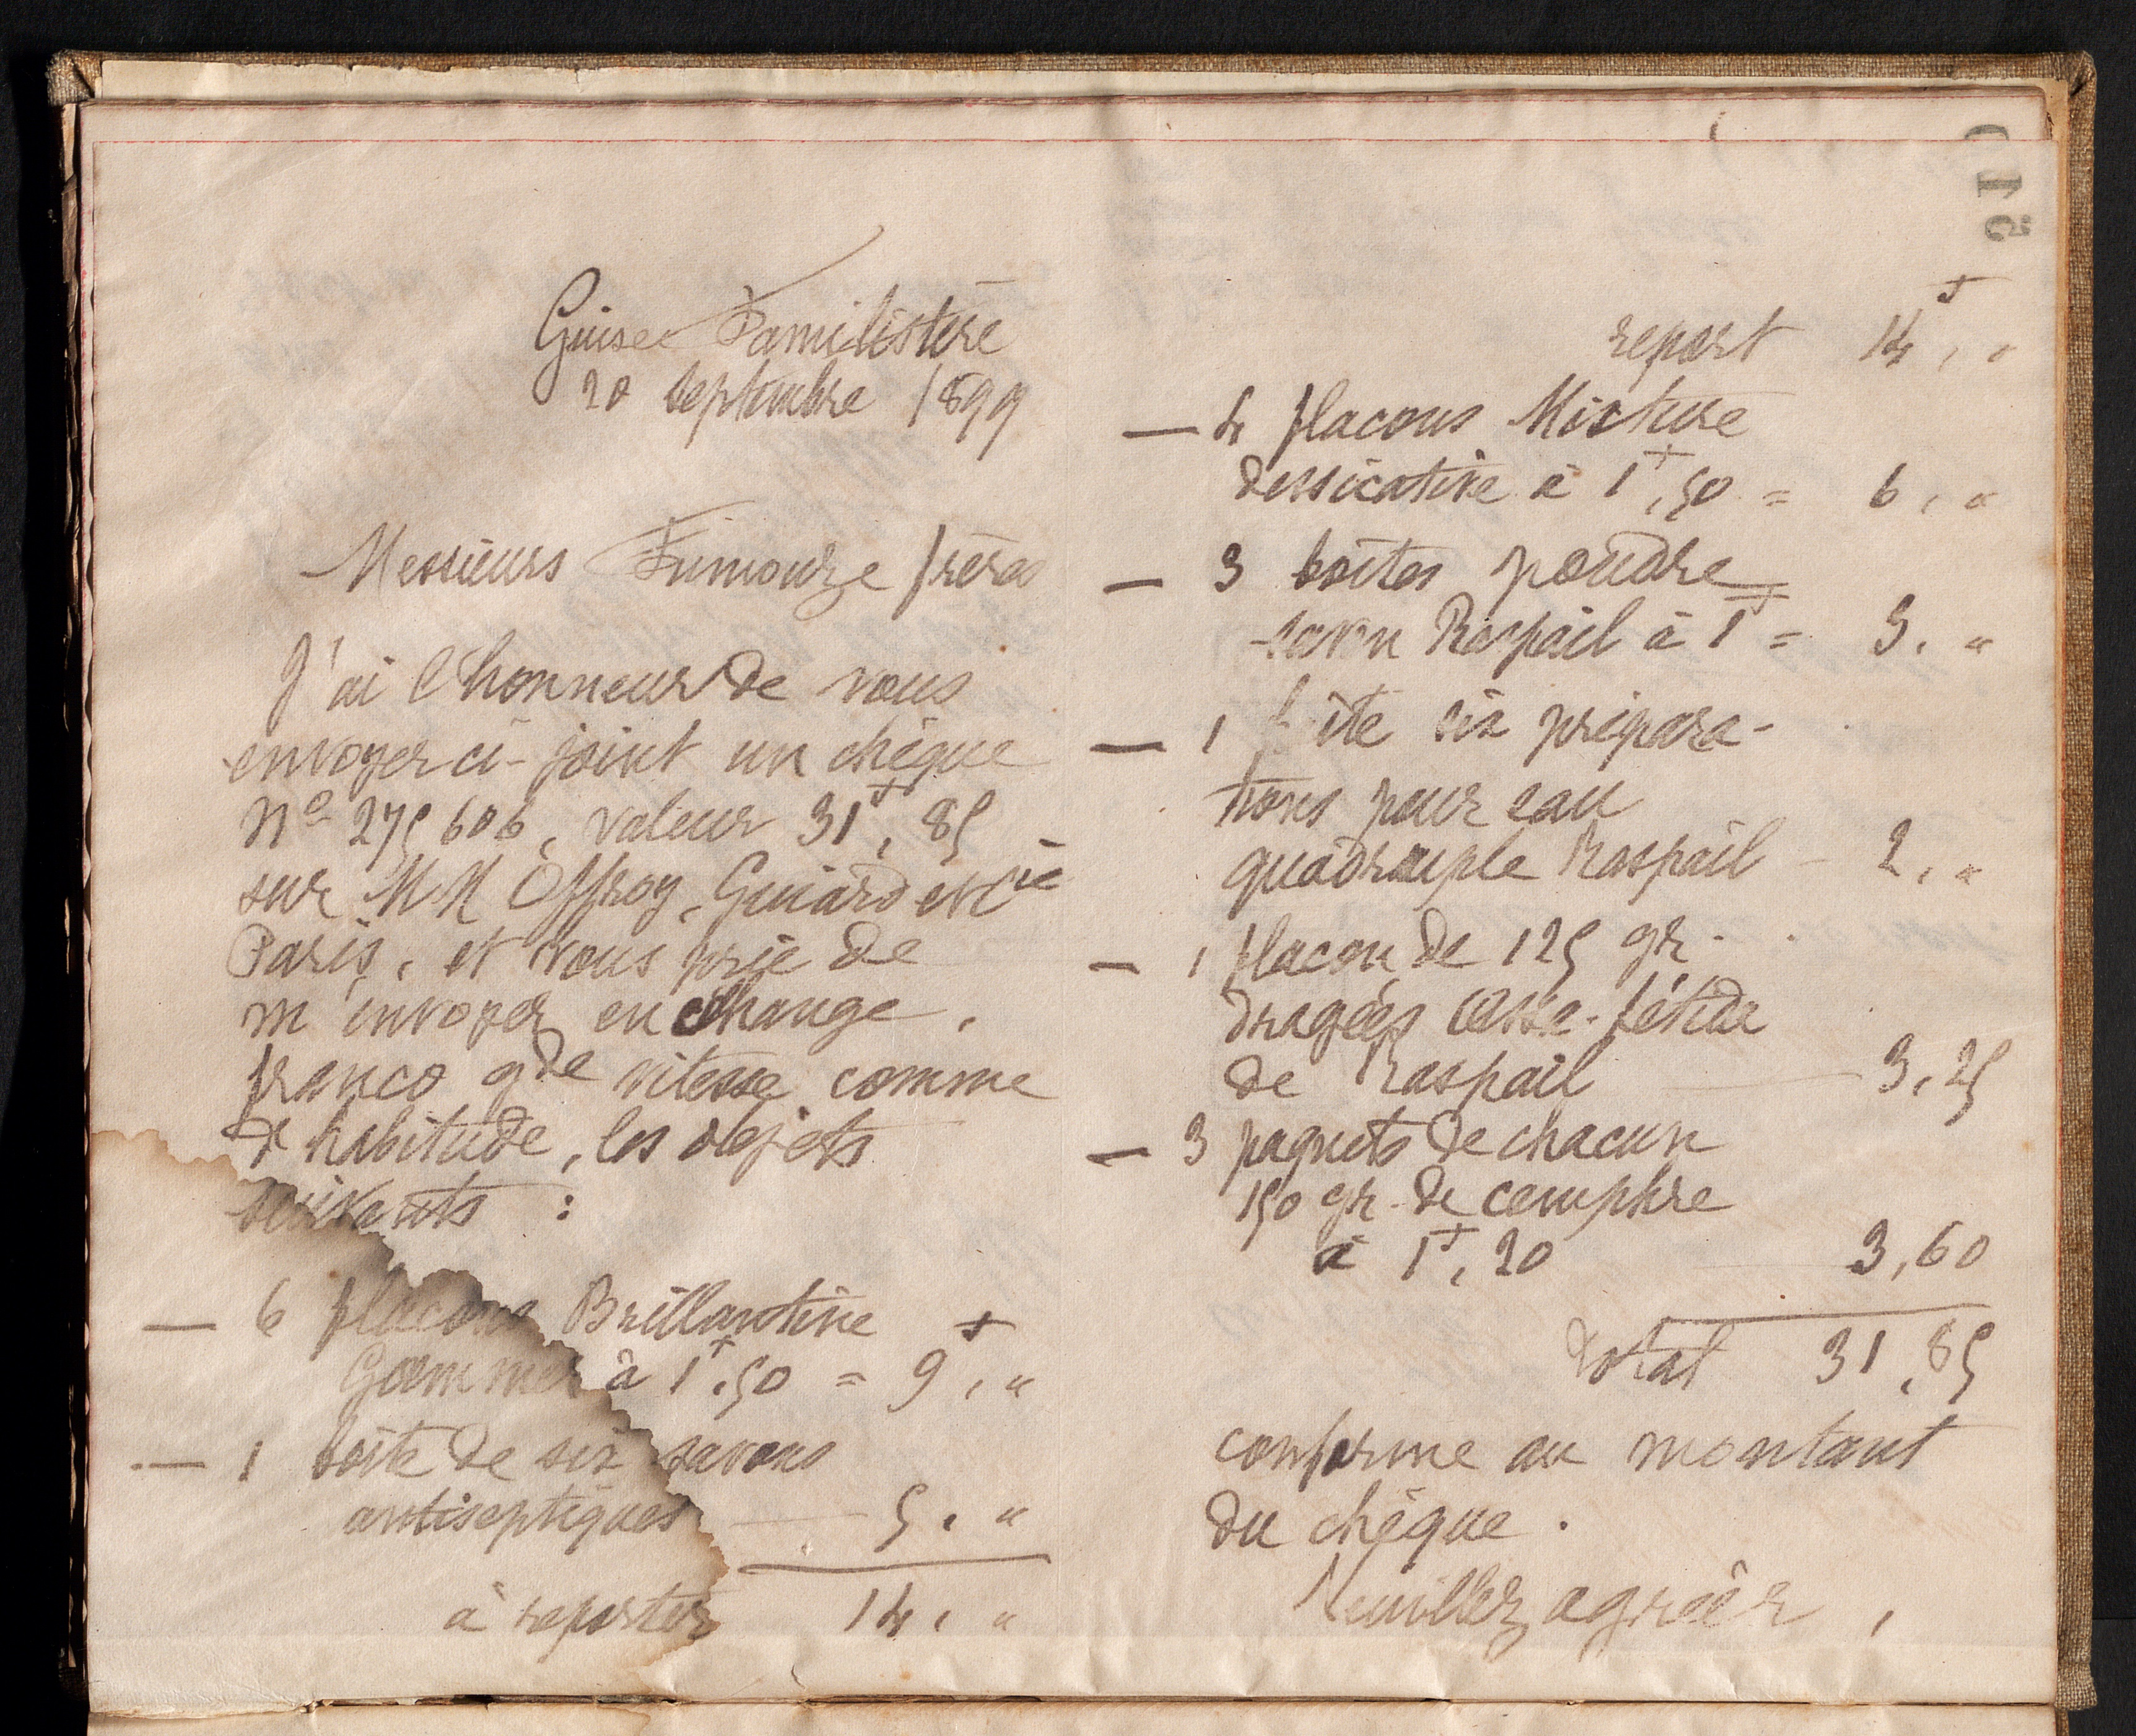 Guise Familistère
20 septembre 1899
Messieurs Fumouze frères
J'ai l'honneur de vous
envoyer ci-joint un chèque
No 275606, valeur 31f, 85
sur MM Offroy, Guiard et Cie
Paris, et vous prie de
m'envoyer en échange,
franco gde vitesse comme
d'habitude, les objets
suivants :
— 6 flacons Brillantine
Gommée à 1f,50 = 9f, "
— 1 boîte de six savons
antiseptiques — 5, "
à reporter 14, "
report 14f, "
— 4 flacons Mixture
dessicative à 1f,50 = 6, "
— 3 boîtes poudre
savon Raspail à 1f = 3, "
— 1 boîte six prépara-
tions pour eau
quadruple Raspail — 2, "
— 1 flacon de 125 gr.
dragées assa-fétida
de Raspail — 3,25
— 3 paquets de chacun
150 gr. de camphre
à 1f,20 3,60
total 31,85
conforme au montant
du chèque.
Veuillez agréer,